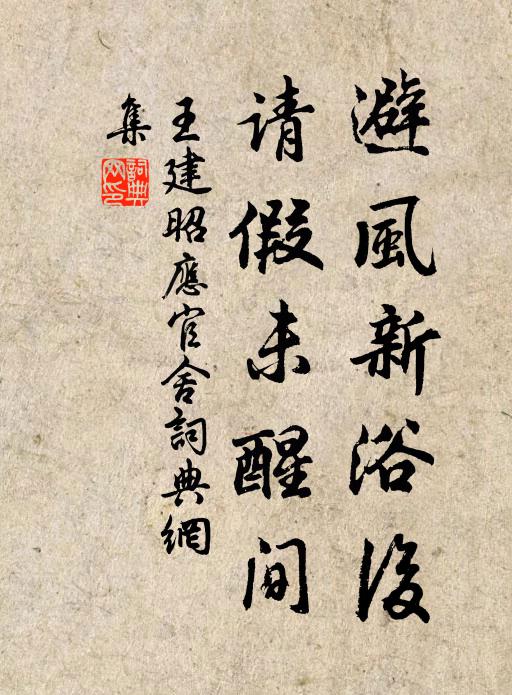 避風新浴後
请假未醒间
王建昭應官舍詞典網
集
詞典网印